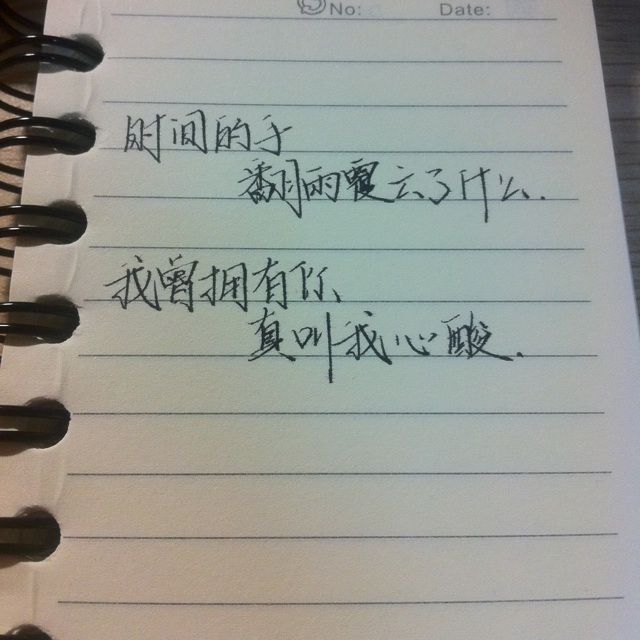 No: Date:
时间的手
翻雨覆云了什么.
我曾拥有你、
真叫我心酸.